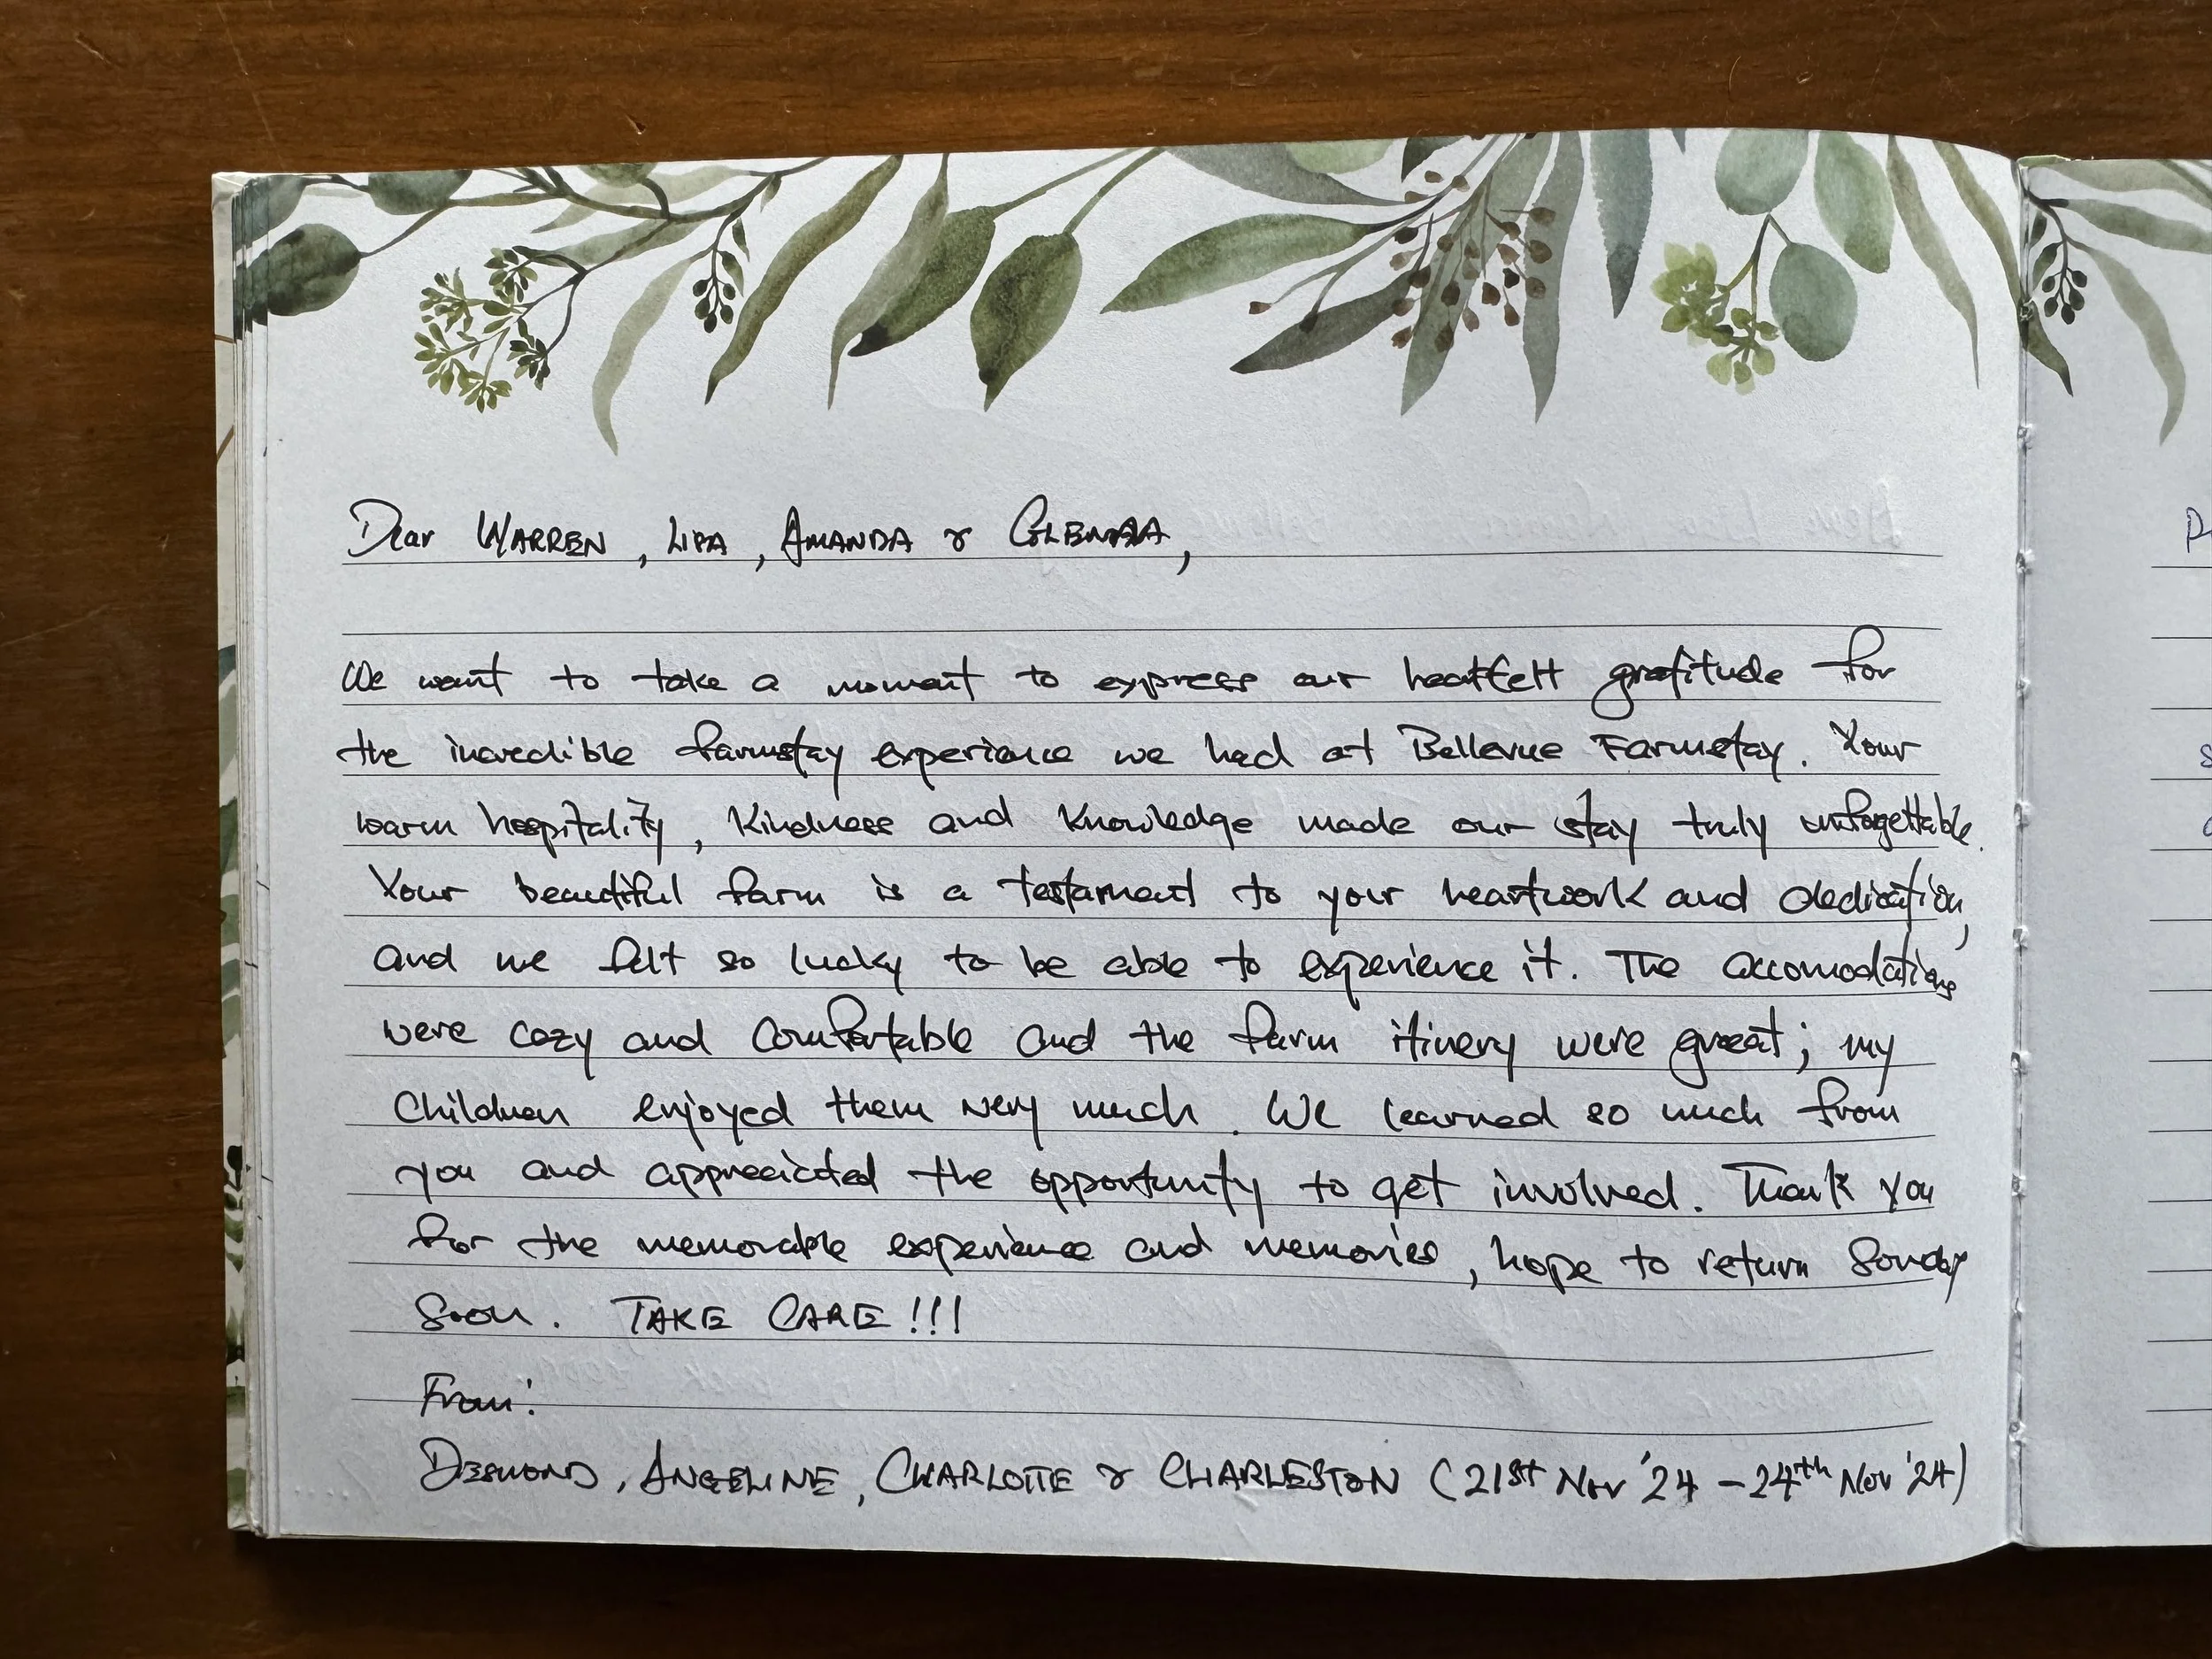 Dear WARREN, LISA, AMANDA & GLENDA,
We want to take a moment to express our heartfelt gratitude for
the incredible farmstay experience we had at Bellevue Farmstay. Your
warm hospitality, kindness and knowledge made our stay truly unfogettable.
Your beautiful farm is a testament to your heartwork and dedication,
and we felt so lucky to be able to experience it. The accomodations
were cozy and comfortable and the farm itinery were great; my
children enjoyed them very much. We learned so much from
you and appreciated the opportunity to get involved. Thank you
for the memorable experience and memories, hope to return
soon. TAKE CARE!!!
From:
DESMOND, ANGELINE, CHARLOTTE & CHARLESTON (21st Nov '24 - 24th Nov '24)